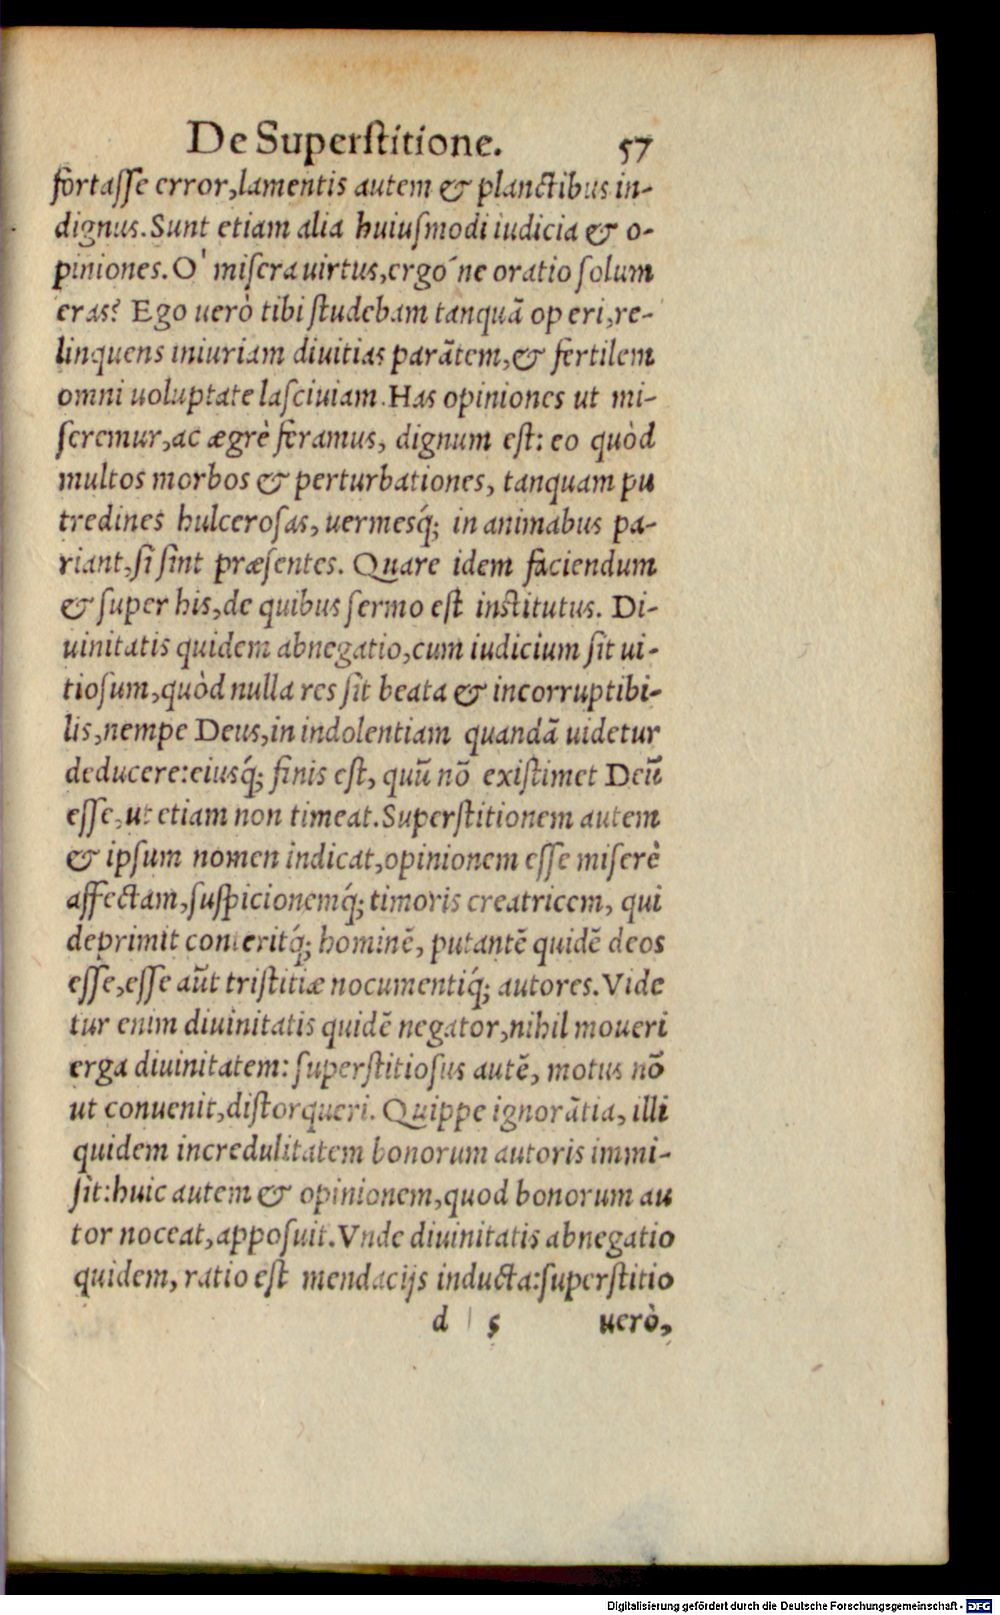 De Superſtitione. 57
fortaſſe error, lamentis autem & planctibus in-
dignus. Sunt etiam alia huiuſmodi iudicia & o-
piniones. O' miſera uirtus, ergo´ne oratio ſolum
eras? Ego uerò tibi ſtudebam tanquā operi, re-
linquens iniuriam diuitias parātem, & fertilem
omni uoluptate laſciuiam. Has opiniones ut mi-
ſeremur, ac ægrè feramus, dignum eſt: eo quòd
multos morbos & perturbationes, tanquam pu
tredines hulceroſas, uermesq́; in animabus pa-
riant, ſi ſint præſentes. Quare idem faciendum
& ſuper his, de quibus ſermo eſt inſtitutus. Di-
uinitatis quidem abnegatio, cum iudicium ſit ui-
tioſum, quòd nulla res ſit beata & incorruptibi-
lis, nempe Deus, in indolentiam quandā uidetur
deducere: eiusq́; finis eſt, quū nō exiſtimet Deū
eſſe, ut etiam non timeat. Superſtitionem autem
& ipſum nomen indicat, opinionem eſſe miſerè
affectam, ſuſpicionemq́; timoris creatricem, qui
deprimit conteritq́; hominē, putantē quidē deos
eſſe, eſſe aūt triſtitiæ nocumentiq́; autores. Vide
tur enim diuinitatis quidē negator, nihil moueri
erga diuinitatem: ſuperſtitioſus autē, motus nō
ut conuenit, diſtorqueri. Quippe ignorātia, illi
quidem incredulitatem bonorum autoris immi-
ſit: huic autem & opinionem, quod bonorum au
tor noceat, appoſuit. Vnde diuinitatis abnegatio
quidem, ratio eſt mendacijs inducta: ſuperſtitio
d 5 uerò,
Digitalisierung gefördert durch die Deutsche Forschungsgemeinschaft - DFG